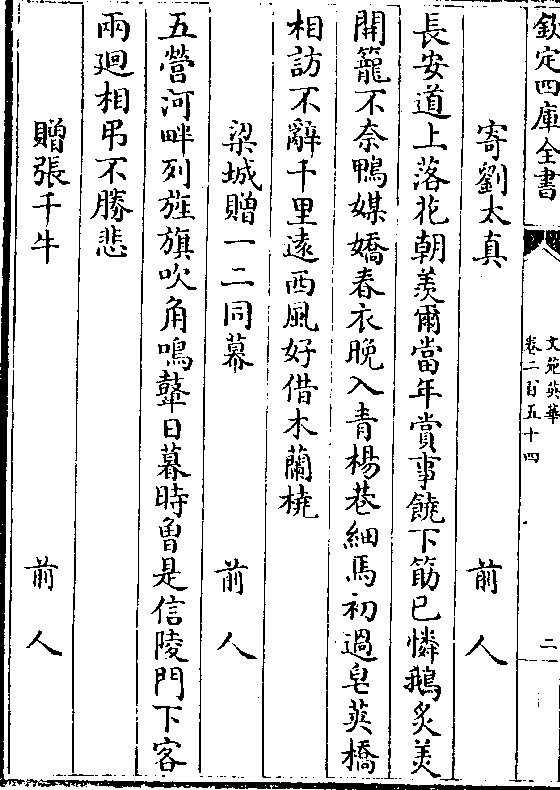 欽定四庫全書
文苑英華
卷二百五十四
二
寄劉太真
前人
長安道上落花朝羨爾當年賞事饒下筯已憐鵝炙美
開籠不奈鴨媒嬌春衣晚入青楊巷細馬初過皂莢橋
相訪不辭千里遠西風好借木蘭橈
梁城贈一二同幕
前人
五營河畔列旌旗吹角鳴鼙日暮時曽是信陵門下客
兩迴相弔不勝悲
贈張千牛
前人